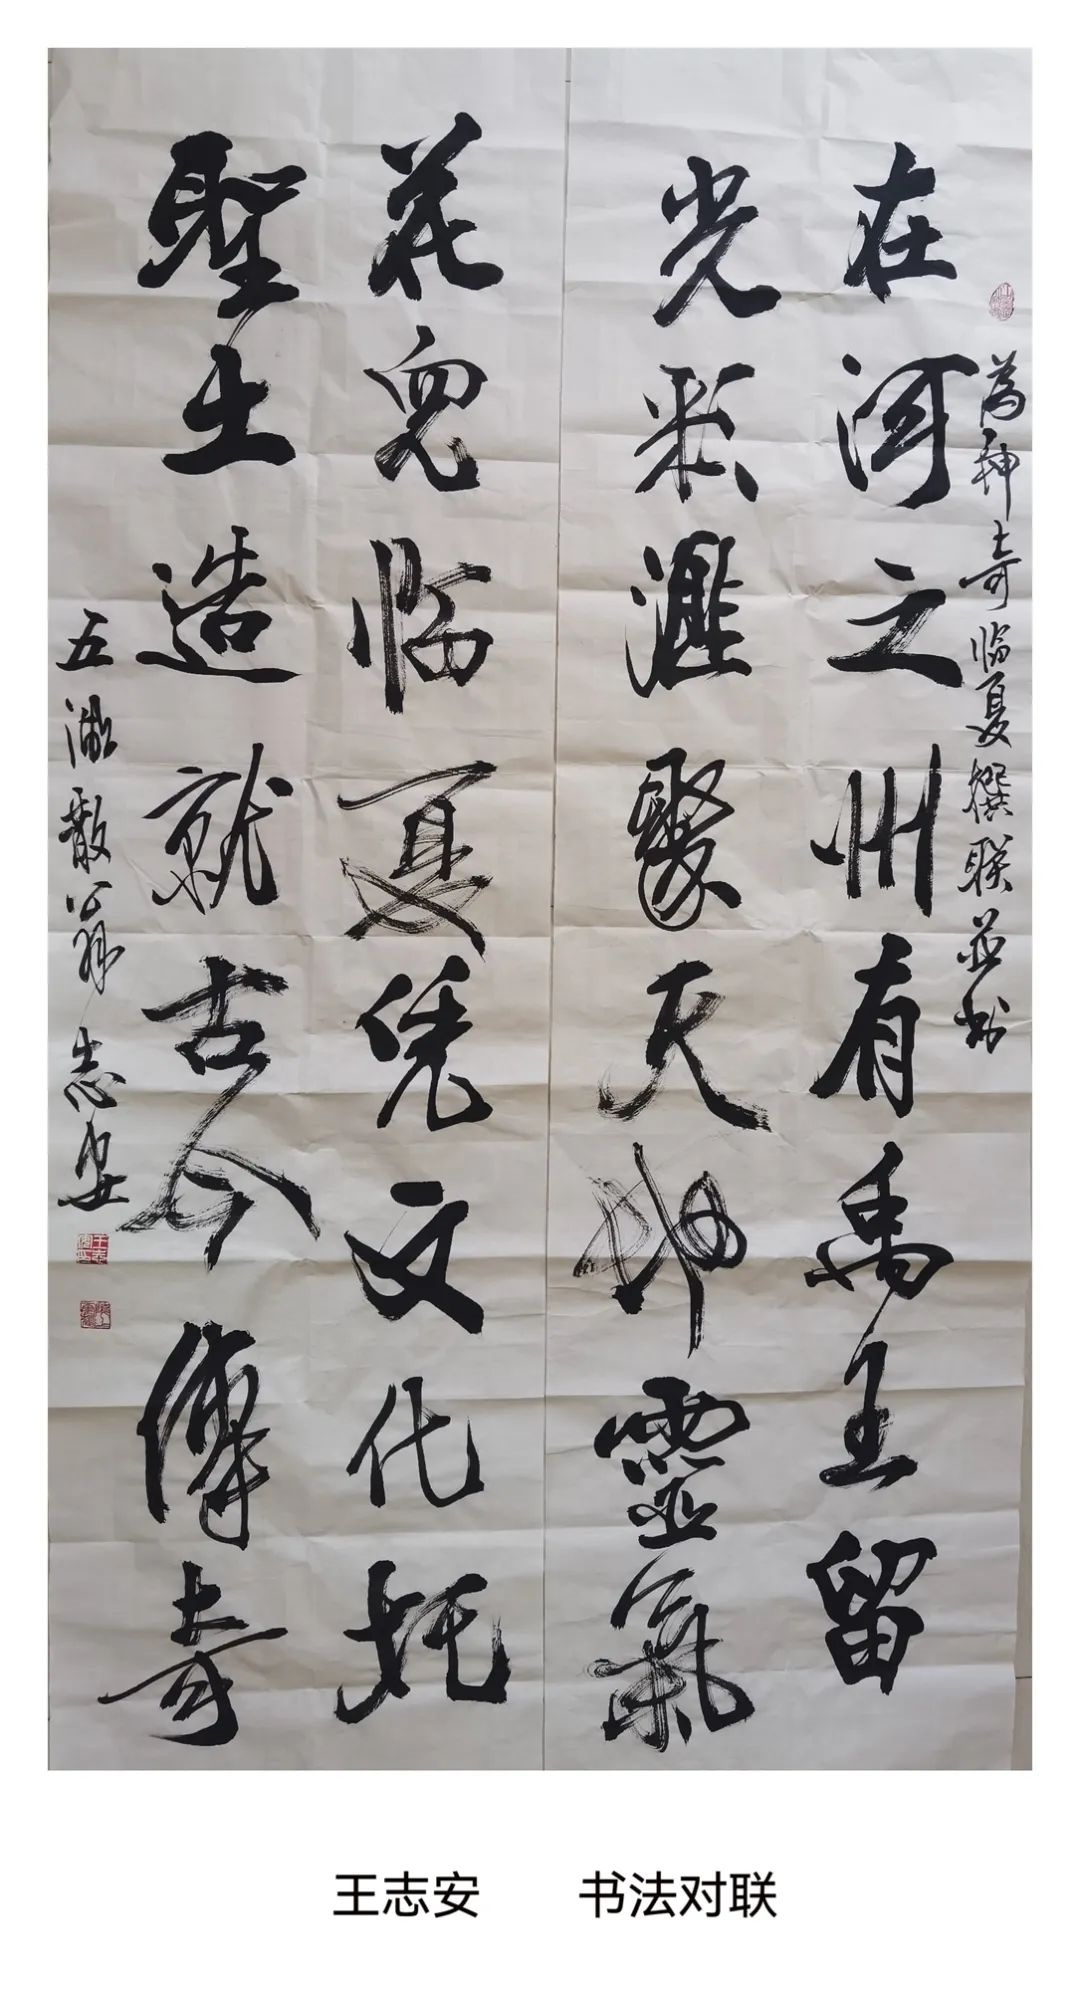 為神奇临夏撰联並书
在河之州有禹王留
光彩滙聚天地靈氣
花兒临夏凭文化托
聖土造就古今傳奇
五 散翁 志安
王志安 书法对联